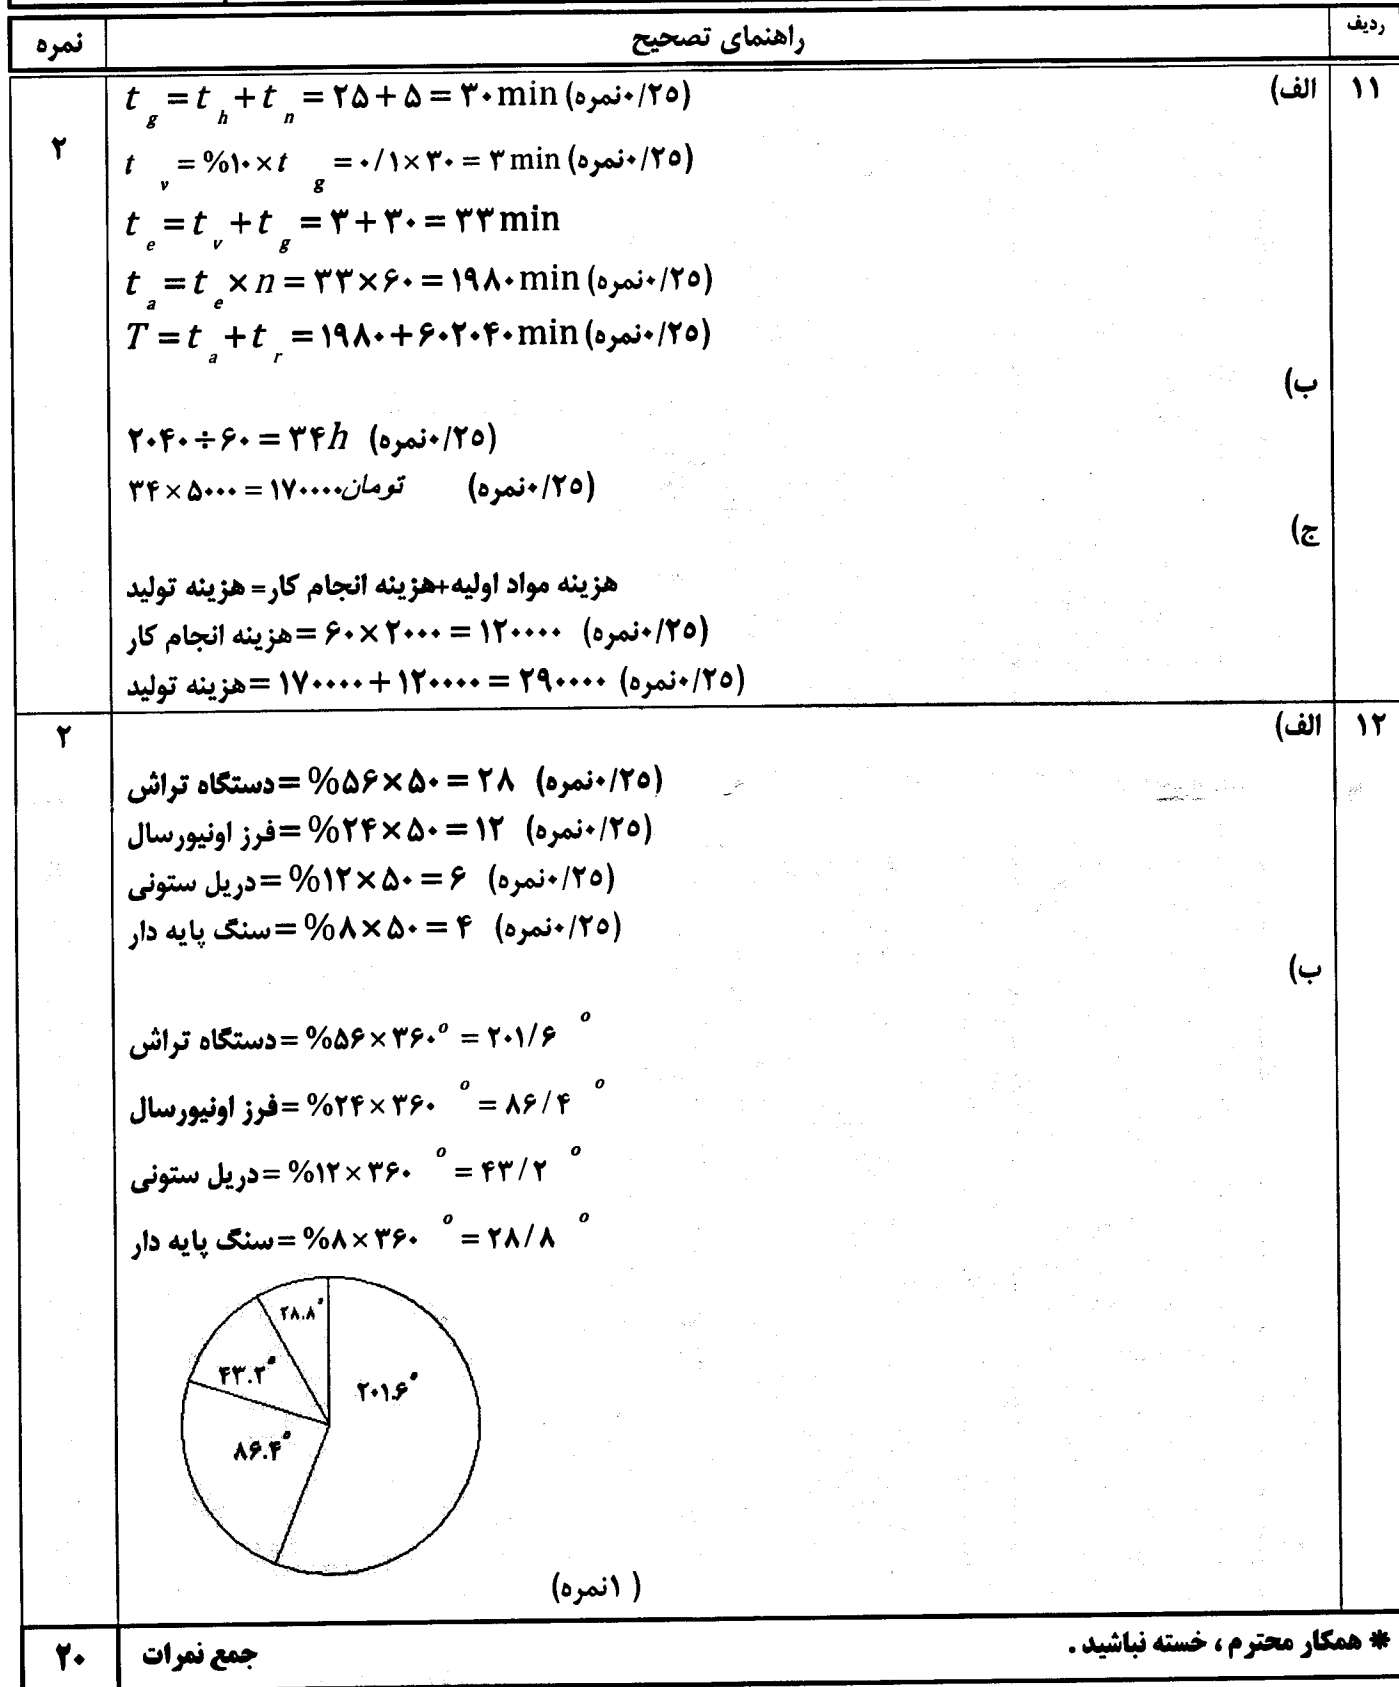 ردیف راهنمای تصحیح نمره
۱۱ الف) ۲
t_g = t_h + t_n = ۲۵ + ۵ = ۳۰ min (۰/۲۵نمره)
t_v = %۱۰ × t_g = ۰/۱ × ۳۰ = ۳ min (۰/۲۵نمره)
t_e = t_v + t_g = ۳ + ۳۰ = ۳۳ min
t_a = t_e × n = ۳۳ × ۶۰ = ۱۹۸۰ min (۰/۲۵نمره)
T = t_a + t_r = ۱۹۸۰ + ۶۰۲۰۴۰ min (۰/۲۵نمره)
ب)
۲۰۴۰ ÷ ۶۰ = ۳۴h (۰/۲۵نمره)
۳۴ × ۵۰۰۰ = ۱۷۰۰۰۰تومان (۰/۲۵نمره)
ج)
هزینه مواد اولیه+هزینه انجام کار= هزینه تولید
هزینه انجام کار= ۶۰ × ۲۰۰۰ = ۱۲۰۰۰۰ (۰/۲۵نمره)
هزینه تولید= ۱۷۰۰۰۰ + ۱۲۰۰۰۰ = ۲۹۰۰۰۰ (۰/۲۵نمره)
۱۲ الف) ۲
دستگاه تراش= %۵۶ × ۵۰ = ۲۸ (۰/۲۵نمره)
فرز اونیورسال= %۲۴ × ۵۰ = ۱۲ (۰/۲۵نمره)
دریل ستونی= %۱۲ × ۵۰ = ۶ (۰/۲۵نمره)
سنگ پایه دار= %۸ × ۵۰ = ۴ (۰/۲۵نمره)
ب)
دستگاه تراش= %۵۶ × ۳۶۰° = ۲۰۱/۶°
فرز اونیورسال= %۲۴ × ۳۶۰° = ۸۶/۴°
دریل ستونی= %۱۲ × ۳۶۰° = ۴۳/۲°
سنگ پایه دار= %۸ × ۳۶۰° = ۲۸/۸°
۲۸.۸°
۴۳.۲°
۲۰۱.۶°
۸۶.۴°
(۱نمره)
* همکار محترم ، خسته نباشید . جمع نمرات ۲۰